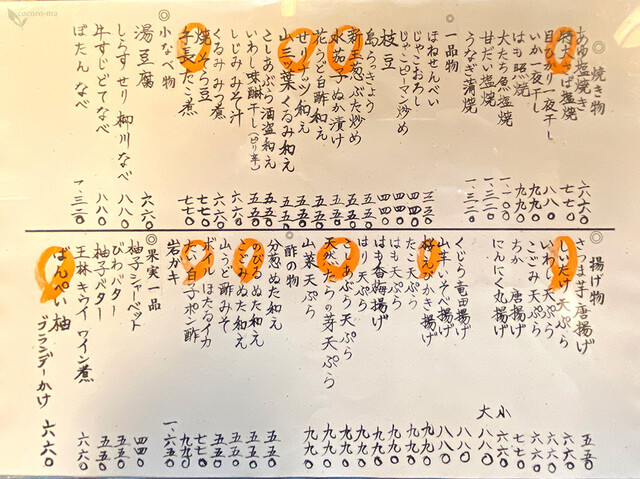 cocoro-ma
◎焼き物
あゆ塩焼き 六六〇
特大さば塩焼 七七〇
目ひかり一夜干し 八八〇
いか一夜干し 九九〇
はも照焼 九九〇
太たち魚塩焼 一、一〇〇
甘だい塩焼 一、三二〇
うなぎ蒲焼 一、三二〇
◎一品物
ほねせんべい 三三〇
じゃこおろし 四四〇
じゃこピーマン炒め 四四〇
枝豆 四四〇
島らっきょう 五五〇
新玉葱ぶた炒め 五五〇
水茄子ぬか漬け 五五〇
花うど白酢和え 五五〇
せりナッツ和え 五五〇
山三ッ葉くるみ和え 五五〇
こしあぶら酒盗和え 五五〇
いわし味醂干し
しじみみそ汁 五五〇
くるみみつ煮 六六〇
焼そら豆 六六〇
手長だこ煮 七七〇
◎小なべ物
湯豆腐 六六〇
しらすせり柳川なべ 八八〇
牛すじどてなべ 八八〇
ぼたんなべ 一、三二〇
◎揚げ物
さつま芋唐揚げ 五五〇
しいたけ天ぷら 六六〇
いわし天ぷら 六六〇
こごみ天ぷら 六六〇
ちか唐揚げ 七七〇
にんにく丸揚げ 小 六六〇
大 八八〇
くじら竜田揚げ 八八〇
山芋しそ揚げ 八八〇
桜えびかき揚げ 九九〇
たこ天ぷら 九九〇
はも天ぷら 九九〇
はも香梅揚げ 九九〇
はりはり天ぷら 九九〇
こしあぶら天ぷら 九九〇
天然たらの芽天ぷら 九九〇
山菜天ぷら 九九〇
◎酢の物
分葱ぬた和え 五五〇
のびるぬた和え 五五〇
こごみぬた和え 五五〇
山うど酢みそ 五五〇
ボイルほたるイカ 七七〇
たい白子ポン酢 九九〇
岩ガキ 一、六五〇
◎果実一品
柚子シャーベット 四四〇
びわバター 五五〇
柚子バター 五五〇
王林キウイワイン煮 六六〇
ばんぺい柚
ブランデーかけ 六六〇